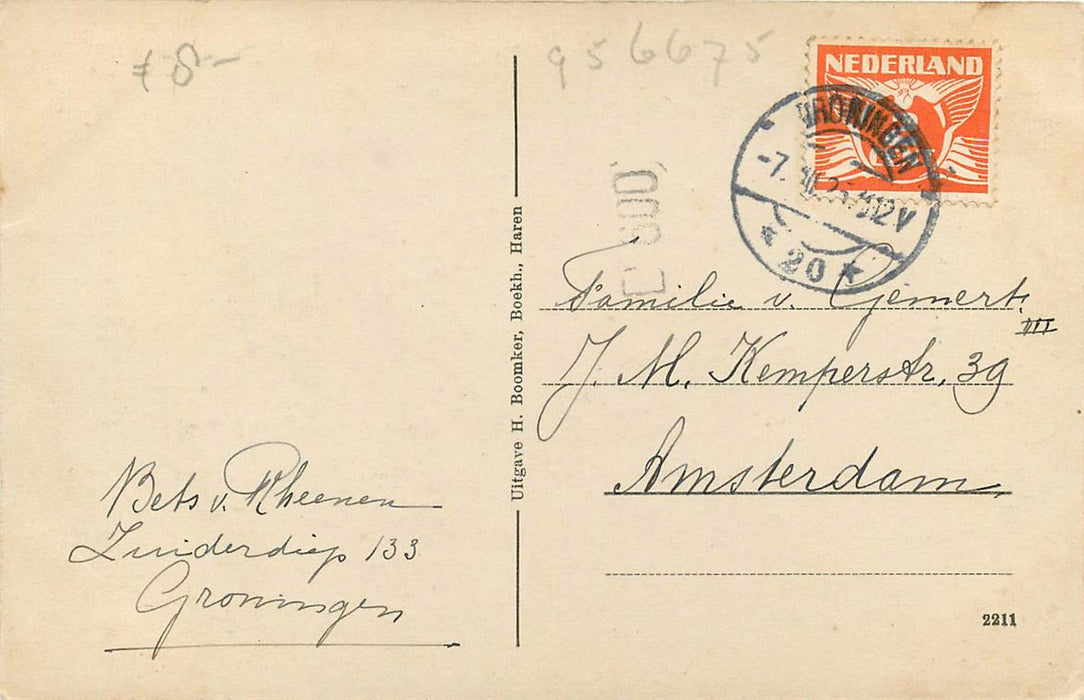 8-
956675
NEDERLAND
GRONINGEN
-7.
12V
20
Familie v. Gemert.
III
J. M. Kemperstr. 39
Amsterdam.
Uitgave H. Boomker, Boekh., Haren
Bets v. Rheenen
Zuiderdiep 133
Groningen
2211